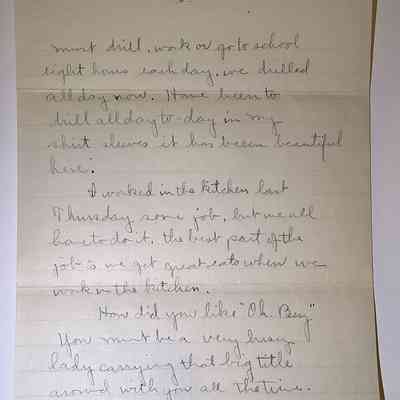 must drill, work or go to school
eight hours each day, we drilled
all day now. Have been to
drill all day to-day in my
shirt sleeves it has been beautiful
here.
I worked in the kitchen last
Thursday some job, but we all
have to do it, the best part of the
job is we get great eats when we
work in the kitchen.
How did you like "Oh
You must be a very busy
lady carrying that big title
around with you all the time.